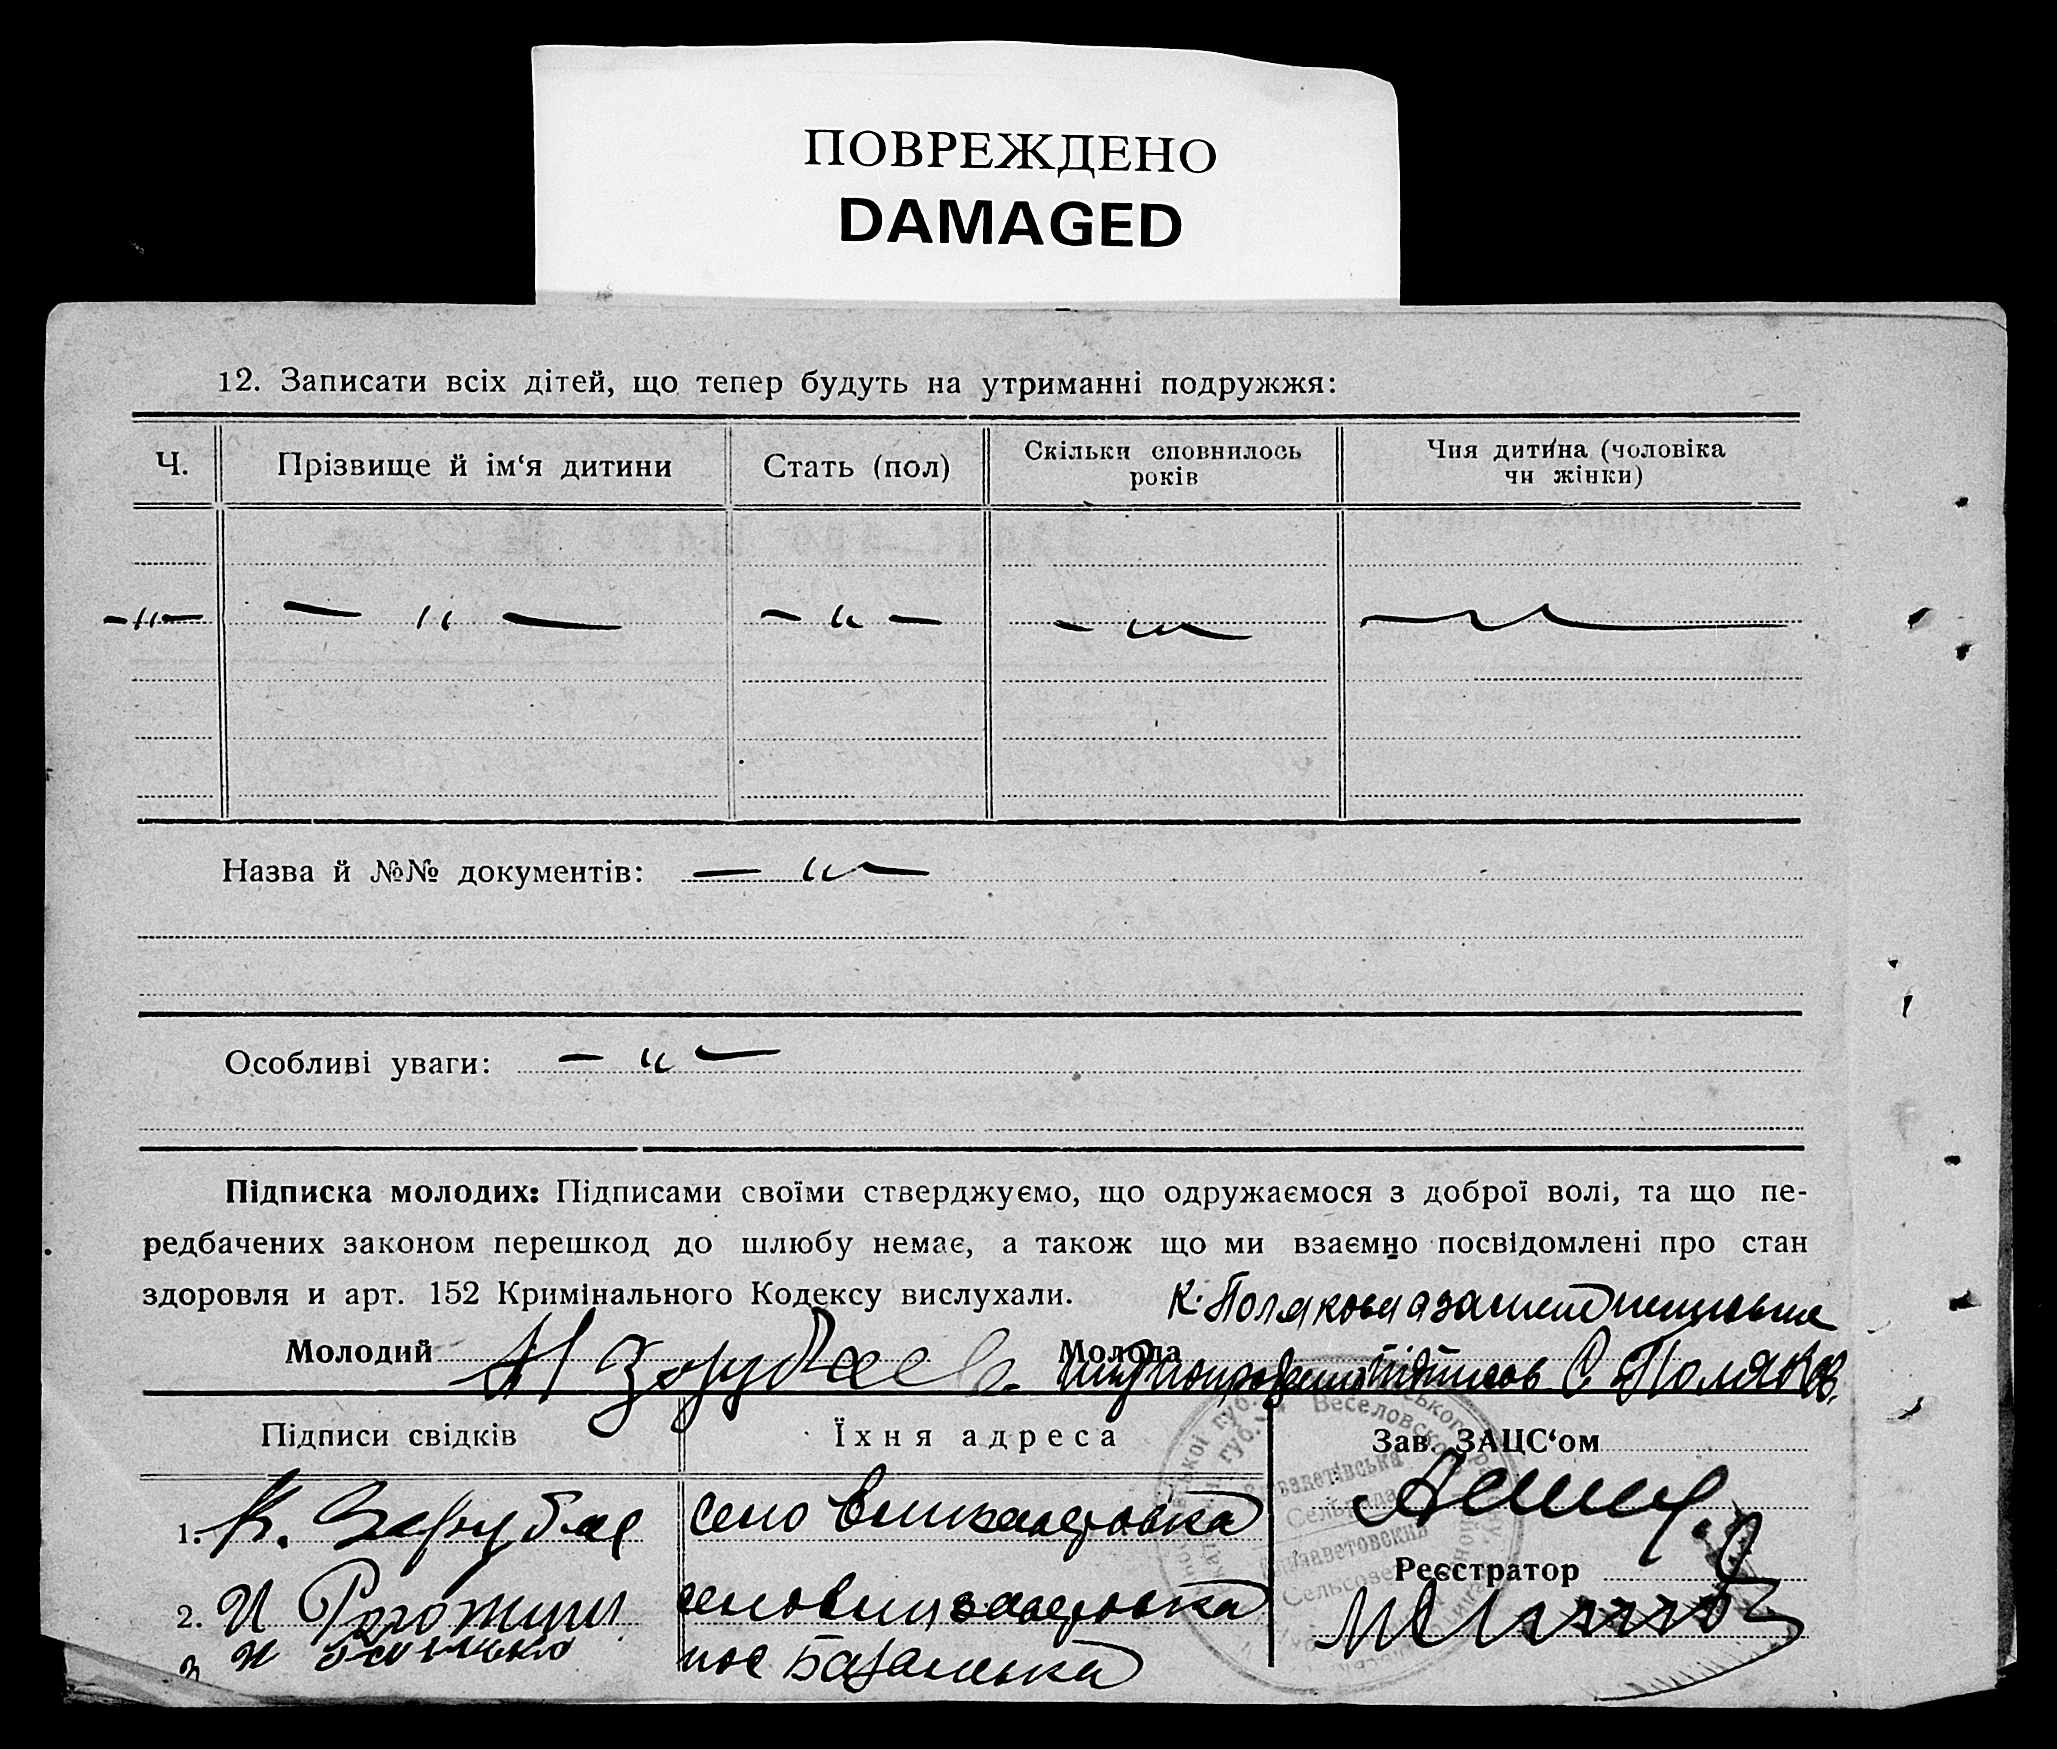 ПОВРЕЖДЕНО
DAMAGED
12. Записати всіх дітей, що тепер будуть на утриманні подружжя:
Ч. Прізвище й ім‘я дитини Стать (пол) Скільки сповнилось років Чия дитина (чоловіка чи жінки)
-"- - " - - " - - " - - " -
Назва й №№ документів: - " -
Особливі уваги: - " -
Підписка молодих: Підписами своїми стверджуємо, що одружаємося з доброї волі, та що пе-
редбачених законом перешкод до шлюбу немає, а також що ми взаємно посвідомлені про стан
здоровля и арт. 152 Кримінального Кодексу вислухали.
К. Полякова
Молодий Молода С Поляков
Підписи свідків Їхня адреса Зав. ЗАЦС‘ом
1. К. Зарубае село
Реєстратор
2. И Рогожин
3 пос
Веселовсько
Сельрада
Елизаветовский
Сельсовет